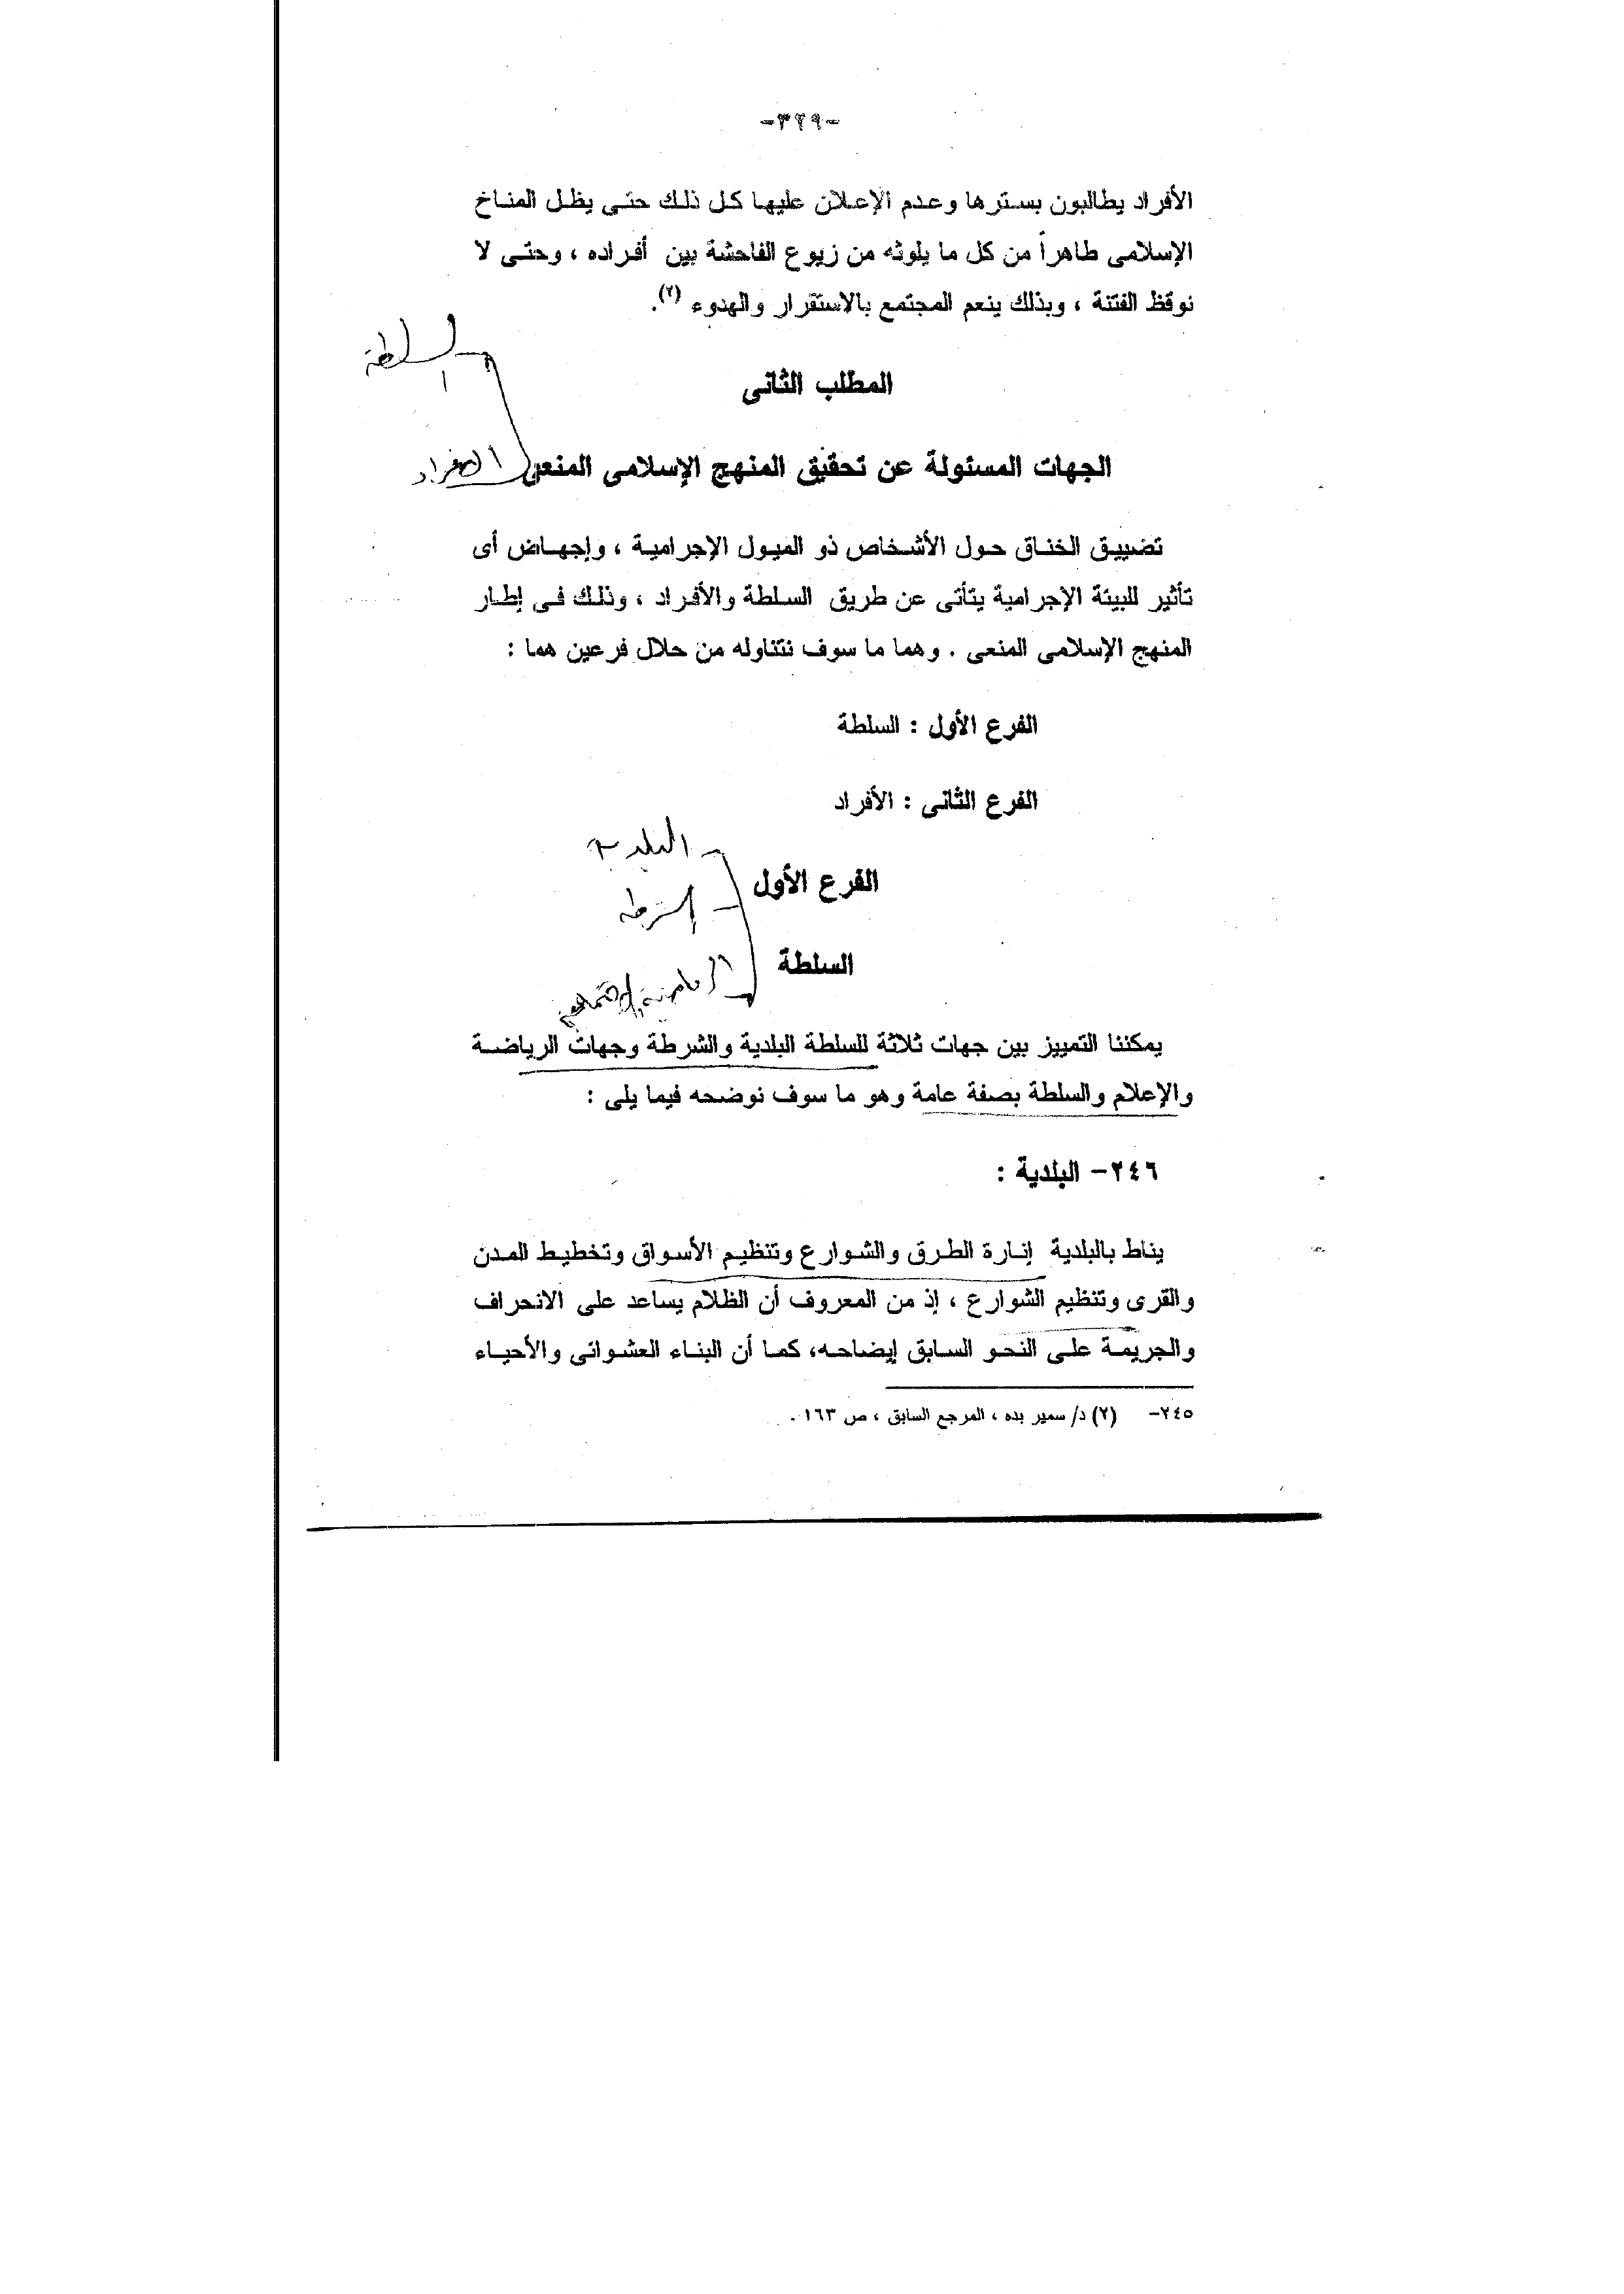 -٣٢٩-
الأفراد يطالبون بسترها وعدم الإعلان عليها كل ذلك حتى يظل المناخ
الإسلامى طاهراً من كل ما يلوثه من زيوع الفاحشة بين أفراده ، وحتى لا
نوقظ الفتنة ، وبذلك ينعم المجتمع بالاستقرار والهدوء (٢).
السلطة
المطلب الثانى
الجهات المسئولة عن تحقيق المنهج الإسلامى المنعى
الأفراد
تضييق الخناق حول الأشخاص ذو الميول الإجرامية ، وإجهاض أى
تأثير للبيئة الإجرامية يتأتى عن طريق السلطة والأفراد ، وذلك فى إطار
المنهج الإسلامى المنعى . وهما ما سوف نتناوله من حلال فرعين هما :
الفرع الأول : السلطة
الفرع الثانى : الأفراد
البلدية
الفرع الأول
الشرطة
السلطة
يمكننا التمييز بين جهات ثلاثة للسلطة البلدية والشرطة وجهات الرياضة
والإعلام والسلطة بصفة عامة وهو ما سوف نوضحه فيما يلى :
٢٤٦- البلدية :
يناط بالبلدية إنارة الطرق والشوارع وتنظيم الأسواق وتخطيط المدن
والقرى وتنظيم الشوارع ، إذ من المعروف أن الظلام يساعد على الانحراف
والجريمة على النحو السابق إيضاحه، كما أن البناء العشوائى والأحياء
٢٤٥- (٢) د/ سمير بده ، المرجع السابق ، ص ١٦٣ .